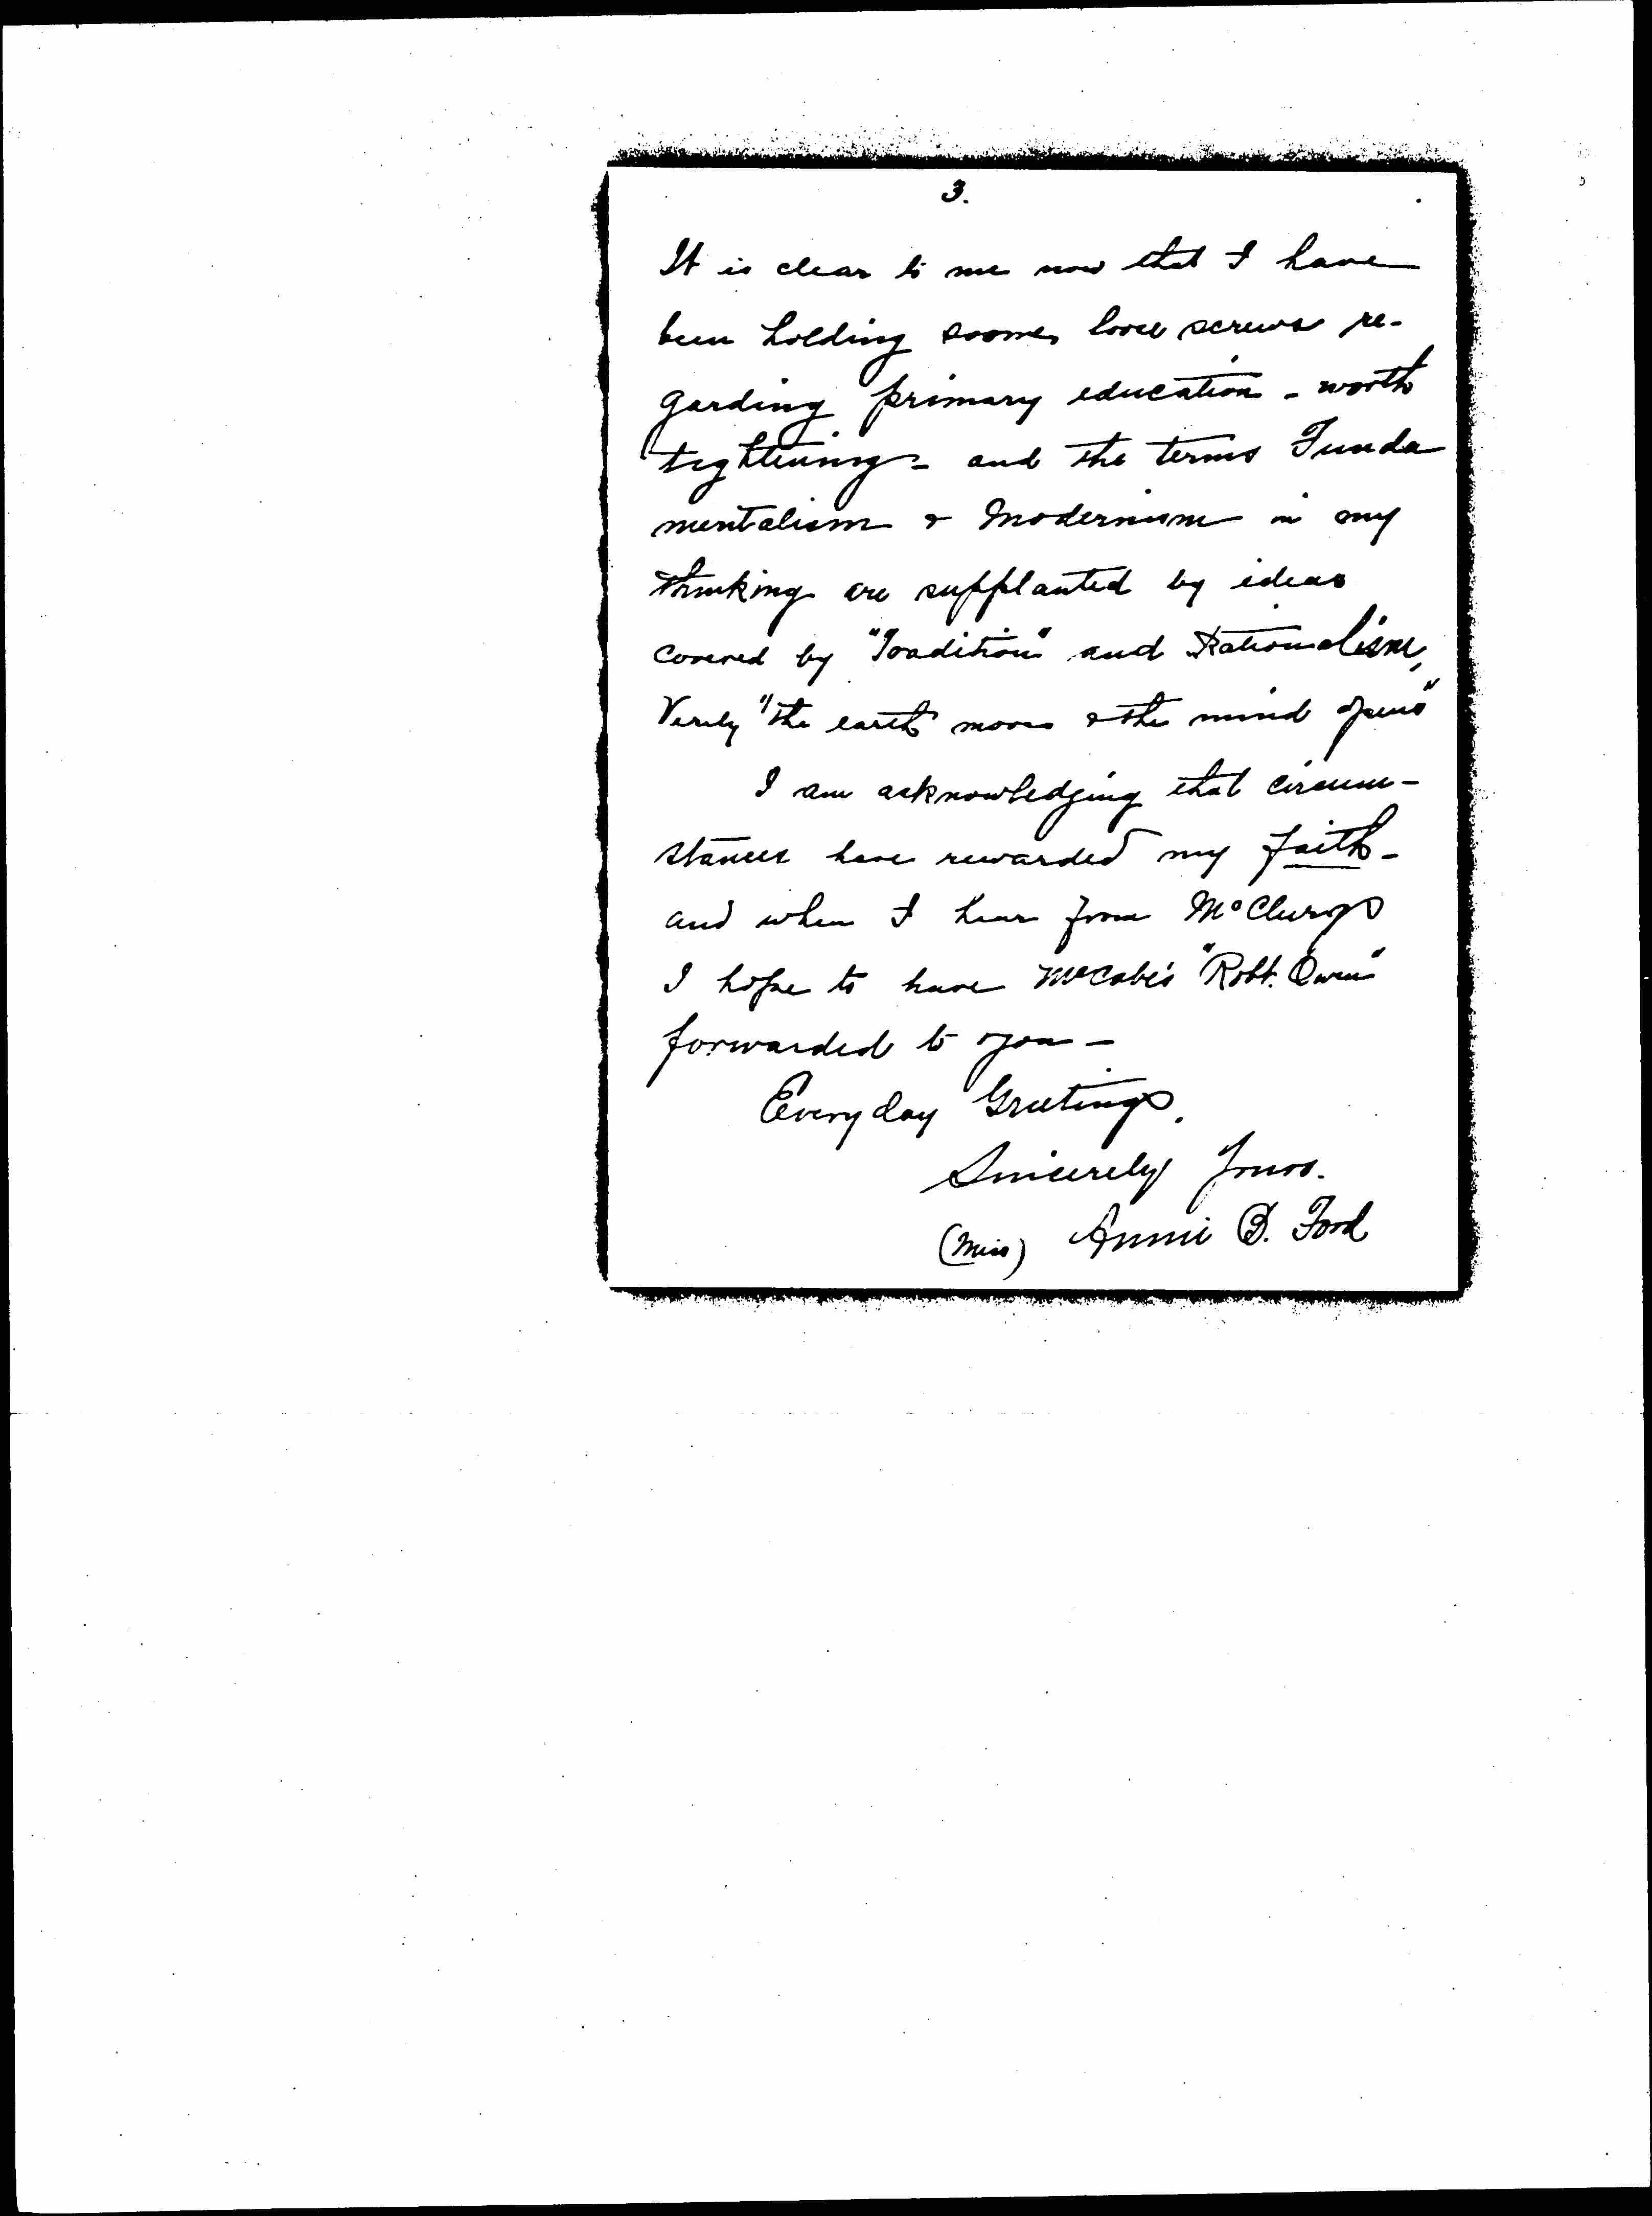 3.
It is clear to me now that I have
been holding some loose screws re-
garding primary education - worth
tightening - and the terms Funda
mentalism & Modernism in my
thinking are supplanted by ideas
covered by "Tradition" and Rationalism,
Verily "the earth moves & the mind opens"
I am acknowledging that circum-
stances have rewarded my faith -
and when I hear from McClurgs
I hope to have McCabe's "Robt. Owen"
forwarded to you -
Everyday Greetings.
Sincerely Yours.
(Miss) Annie B. Ford